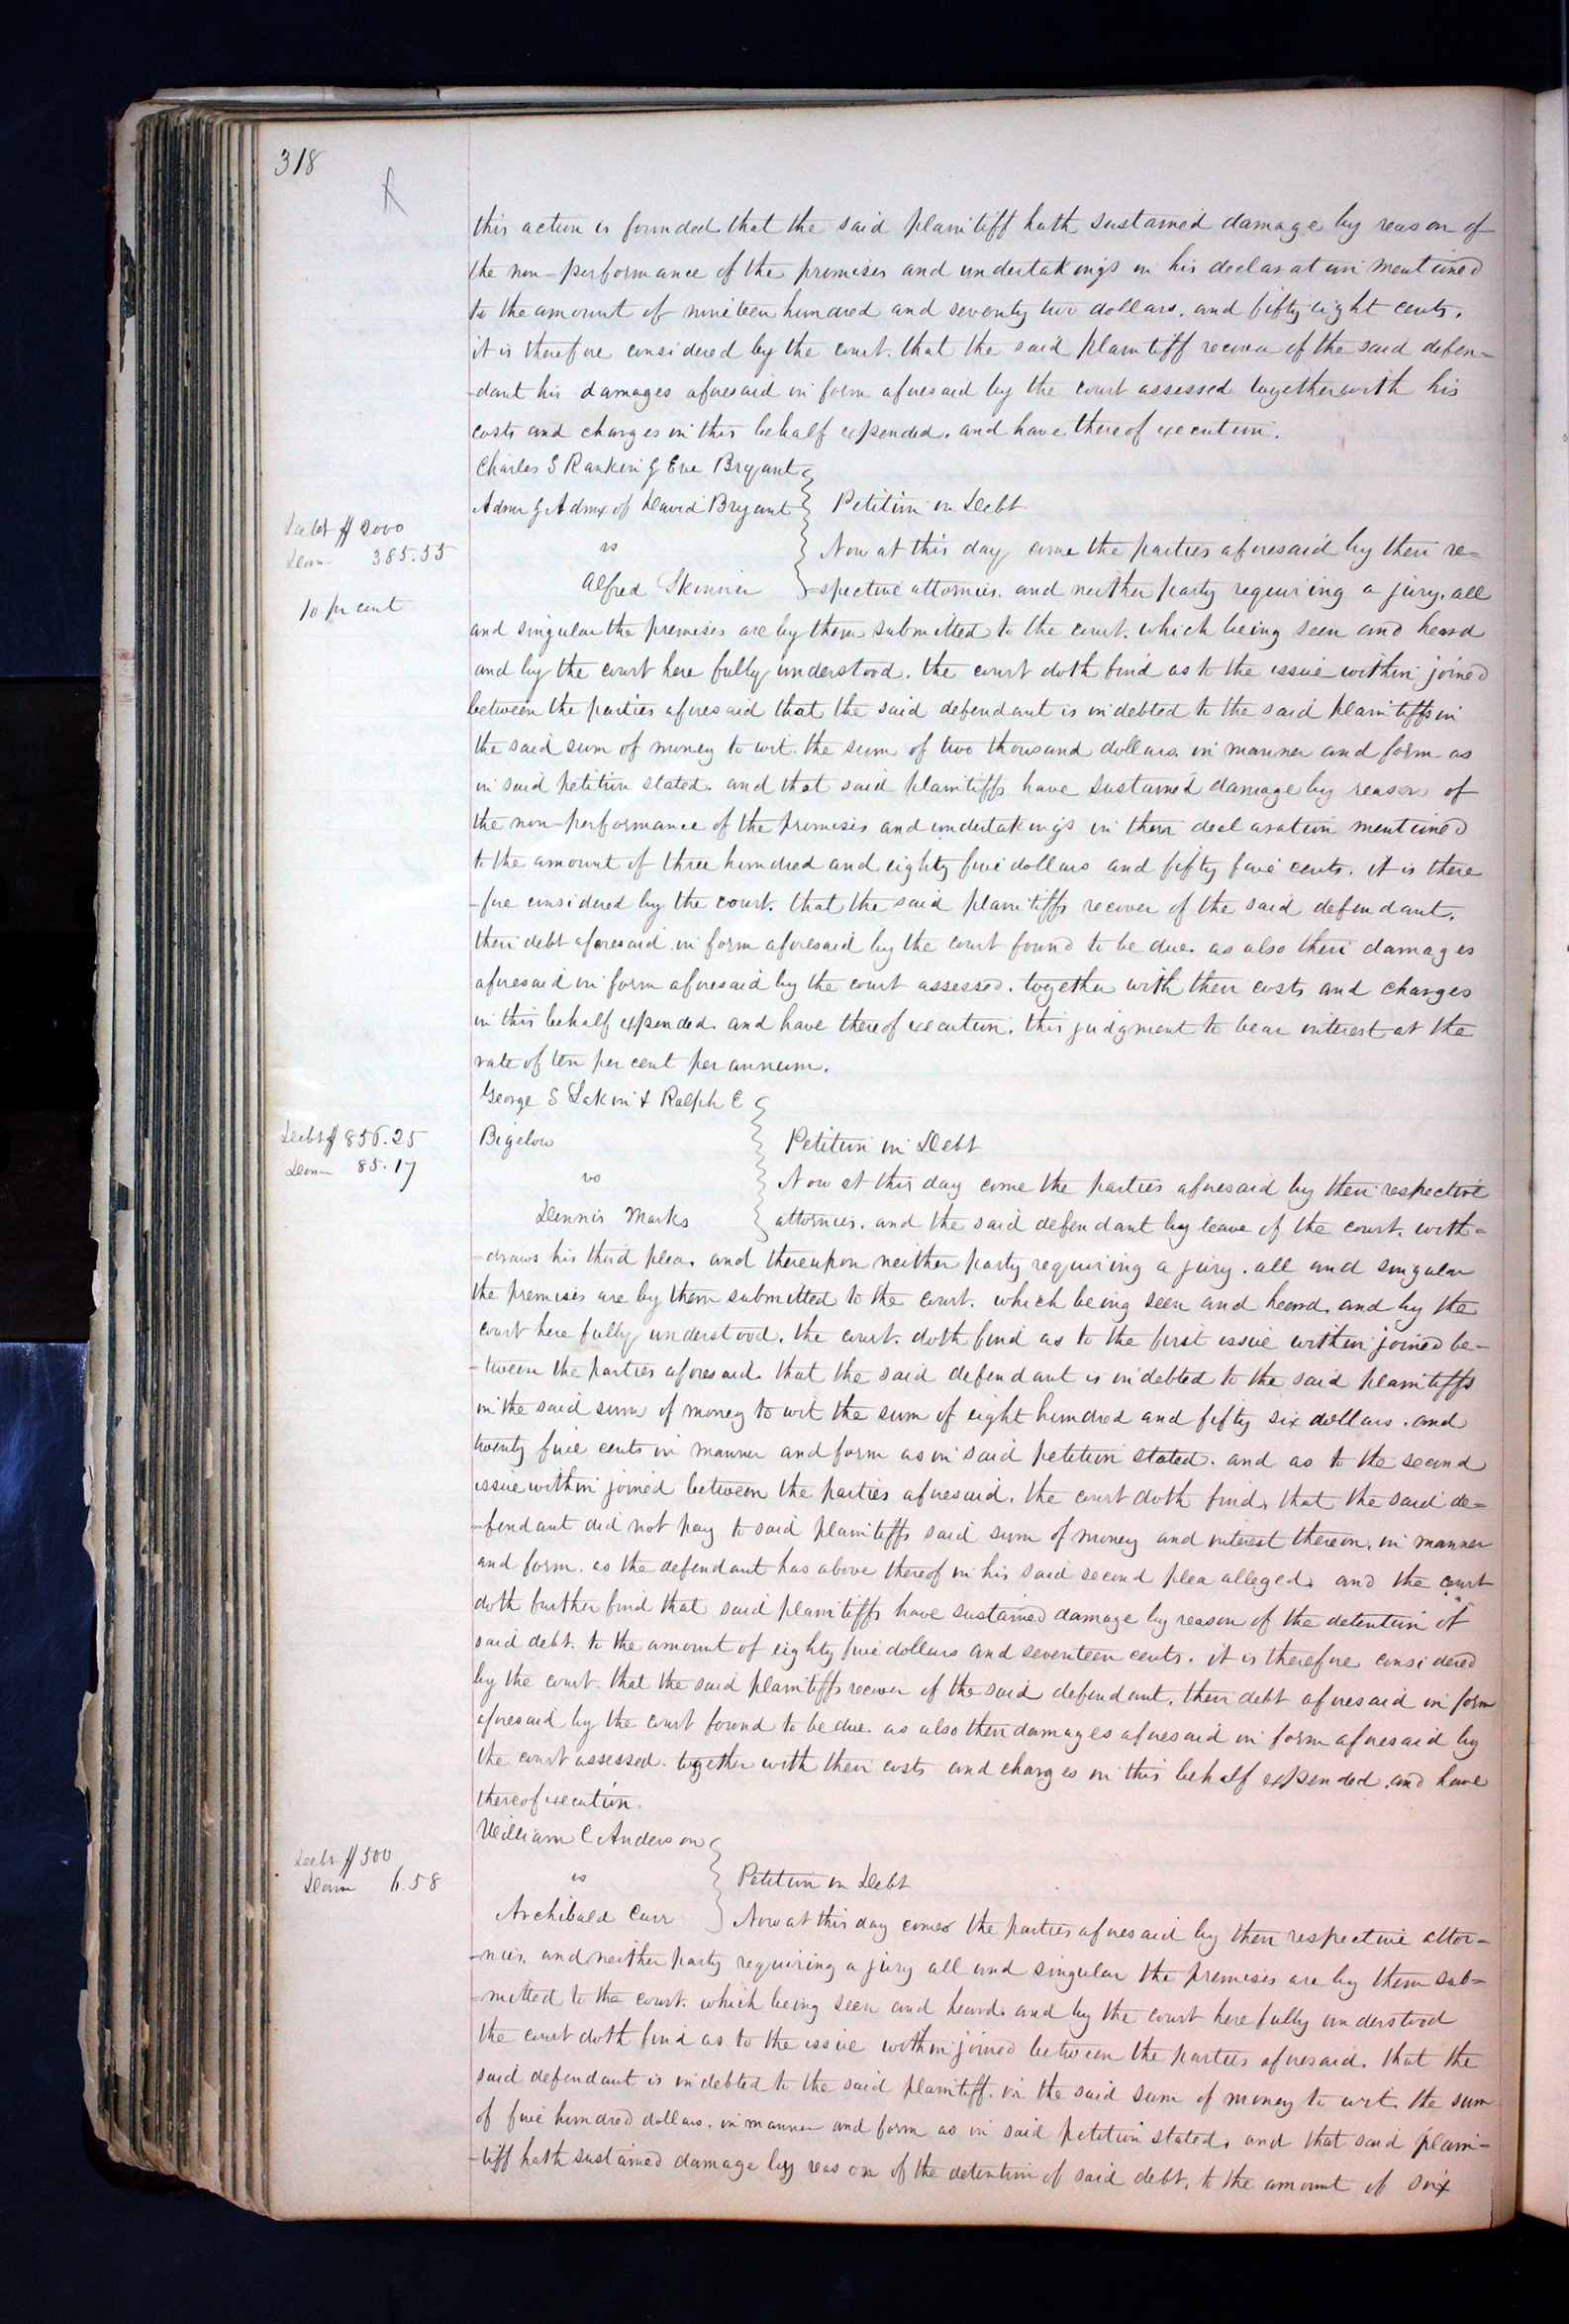 318
this action is founded. that the said plaintiff hath sustained damage by reason of
the non-performance of the premises and undertakings in his declaration mentioned
to the amount of nineteen hundred and seventy two dollars. and fifty eight cents.
it is therefore considered by the court. that the said plaintiff recover of the said defen=
-dant his damages aforesaid in form aforesaid by the court assessed together with his
costs and charges in this behalf expended. and have thereof execution.
Charles S Rankin & Eve Bryant
Admr & Admx of David Bryant
vs
Alfred Skinner
Debt $2000
Dam 385.55
10 pr cent
Petition in Debt
Now at this day came the parties aforesaid by their re=
-spective attornies. and neither party requiring a jury. all
and singular the premises are by them submitted to the court. which being seen and heard
and by the court here fully understood. the court doth find as to the issue within joined
between the parties aforesaid that the said defendant is indebted to the said plaintiffs in
the said sum of money to wit. the sum of two thousand dollars. in manner and form as
in said petition stated. and that said plaintiffs have sustained damage by reason of
the non-performance of the premises and undertakings in their declaration mentioned
to the amount of three hundred and eighty five dollars and fifty five cents. it is there
-fore considered by the court. that the said plaintiffs recover of the said defendant.
their debt aforesaid in form aforesaid by the court found to be due. as also their damages
aforesaid in form aforesaid by the court assessed. together with their costs and charges
in this behalf expended. and have thereof execution. this judgment to bear interest at the
rate of ten per cent per annum.
George S Lakin & Ralph E
Bigelow
vs
Dennis Marks
Debt $856.25
Dam 85.17
Petition in Debt
Now at this day come the parties aforesaid by their respective
attornies. and the said defendant by leave of the court. with=
-draws his third plea. and thereupon neither party requiring a jury. all and singular
the premises are by them submitted to the court. which being seen and heard. and by the
court here fully understood. the court. doth find as to the first issue within joined be-
-tween the parties aforesaid. that the said defendant is indebted to the said plaintiffs
in the said sum of money to wit the sum of eight hundred and fifty six dollars. and
twenty five cents in manner and form as in said petition stated. and as to the second
issue within joined between the parties aforesaid. the court doth find. that the said de=
-fendant did not pay to said plaintiffs said sum of money and interest thereon. in manner
and form. as the defendant has above thereof in his said second plea alleged. and the court
doth further find that said plaintiffs have sustained damage by reason of the detention of
said debt. to the amount of eighty five dollars and seventeen cents. it is therefore considered
by the court. that the said plaintiffs recover of the said defendant. their debt aforesaid in form
aforesaid by the court found to be due. as also their damages aforesaid in form aforesaid by
the court assessed. together with their costs and charges in this behalf expended. and have
thereof execution.
William C Anderson
vs
Archibald Carr
Debt $500
Dam 6.58
Petition in Debt
Now at this day comes the parties aforesaid by their respective attor=
-nies. and neither party requiring a jury all and singular the premises are by them sub=
=mitted to the court. which being seen and heard. and by the court here fully understood
the court doth find as to the issue within joined between the parties aforesaid. that the
said defendant is indebted to the said plaintiff. in the said sum of money to wit. the sum
of five hundred dollars. in manner and form as in said petition stated. and that said plain-
-tiff hath sustained damage by reason of the detention of said debt. to the amount of six